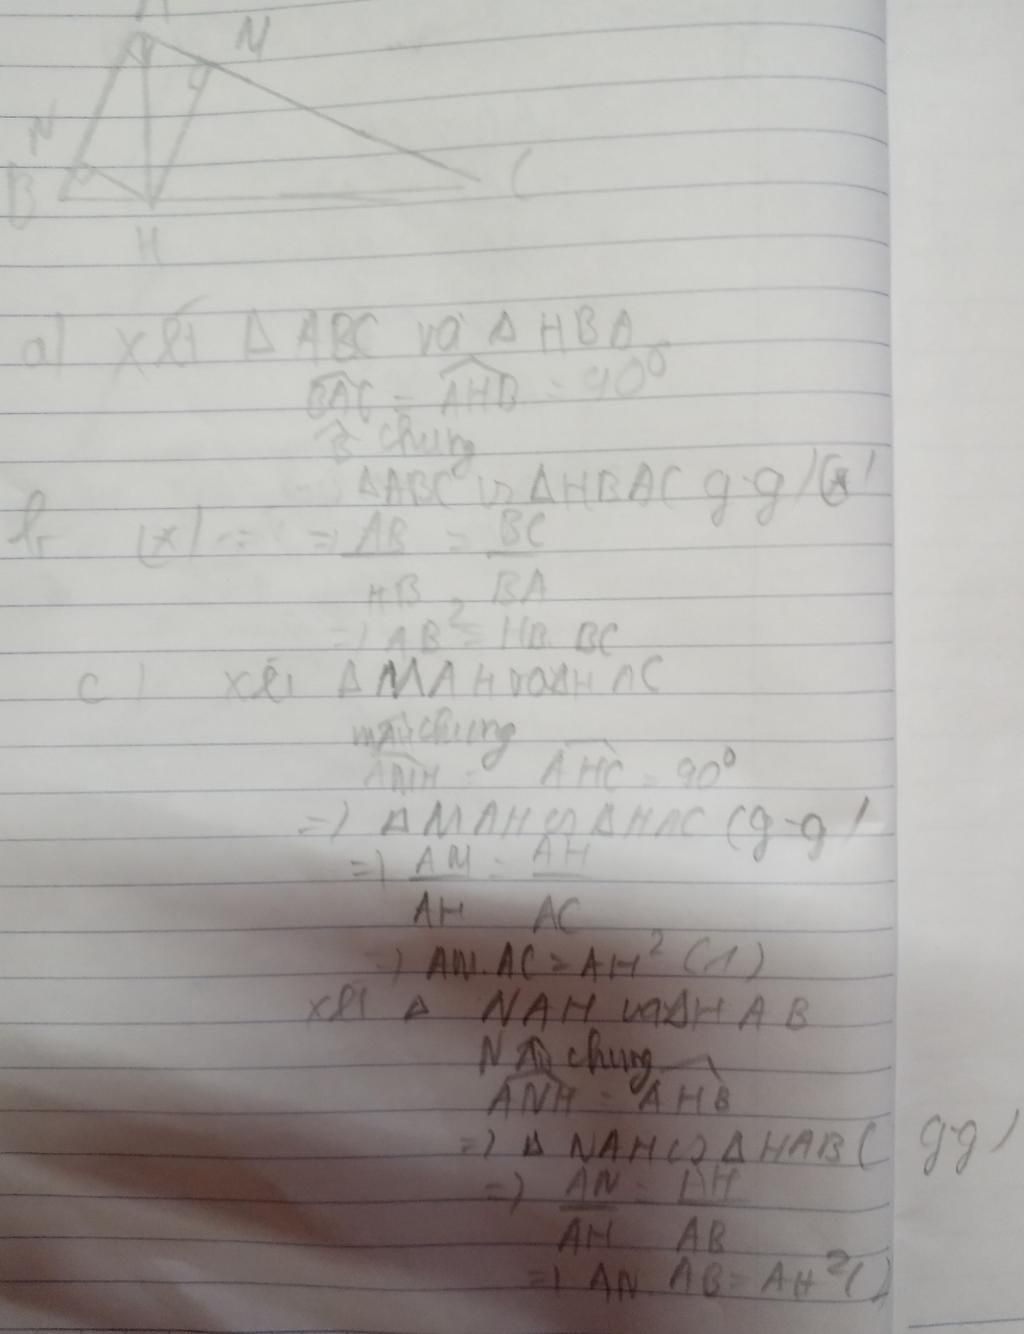 A
M
N
B
C
H
a) xét Δ ABC và Δ HBA
BAC = AHB = 90⁰
B chung
ΔABC ∽ ΔHBA (g-g)
b, (x) => AB/HB = BC/BA
=> AB² = HB. BC
c) xét ΔMAH và ΔHAC
MAH chung
AMH = AHC = 90⁰
=> ΔMAH ∽ ΔHAC (g-g)
=> AM/AH = AH/AC
=> AN.AC = AH² (1)
xét Δ NAH và ΔHAB
chung
ANH = AHB
=> Δ NAH ∽ ΔHAB (g-g)
=> AN/AH = AH/AB
=> AN. AB = AH² ( )